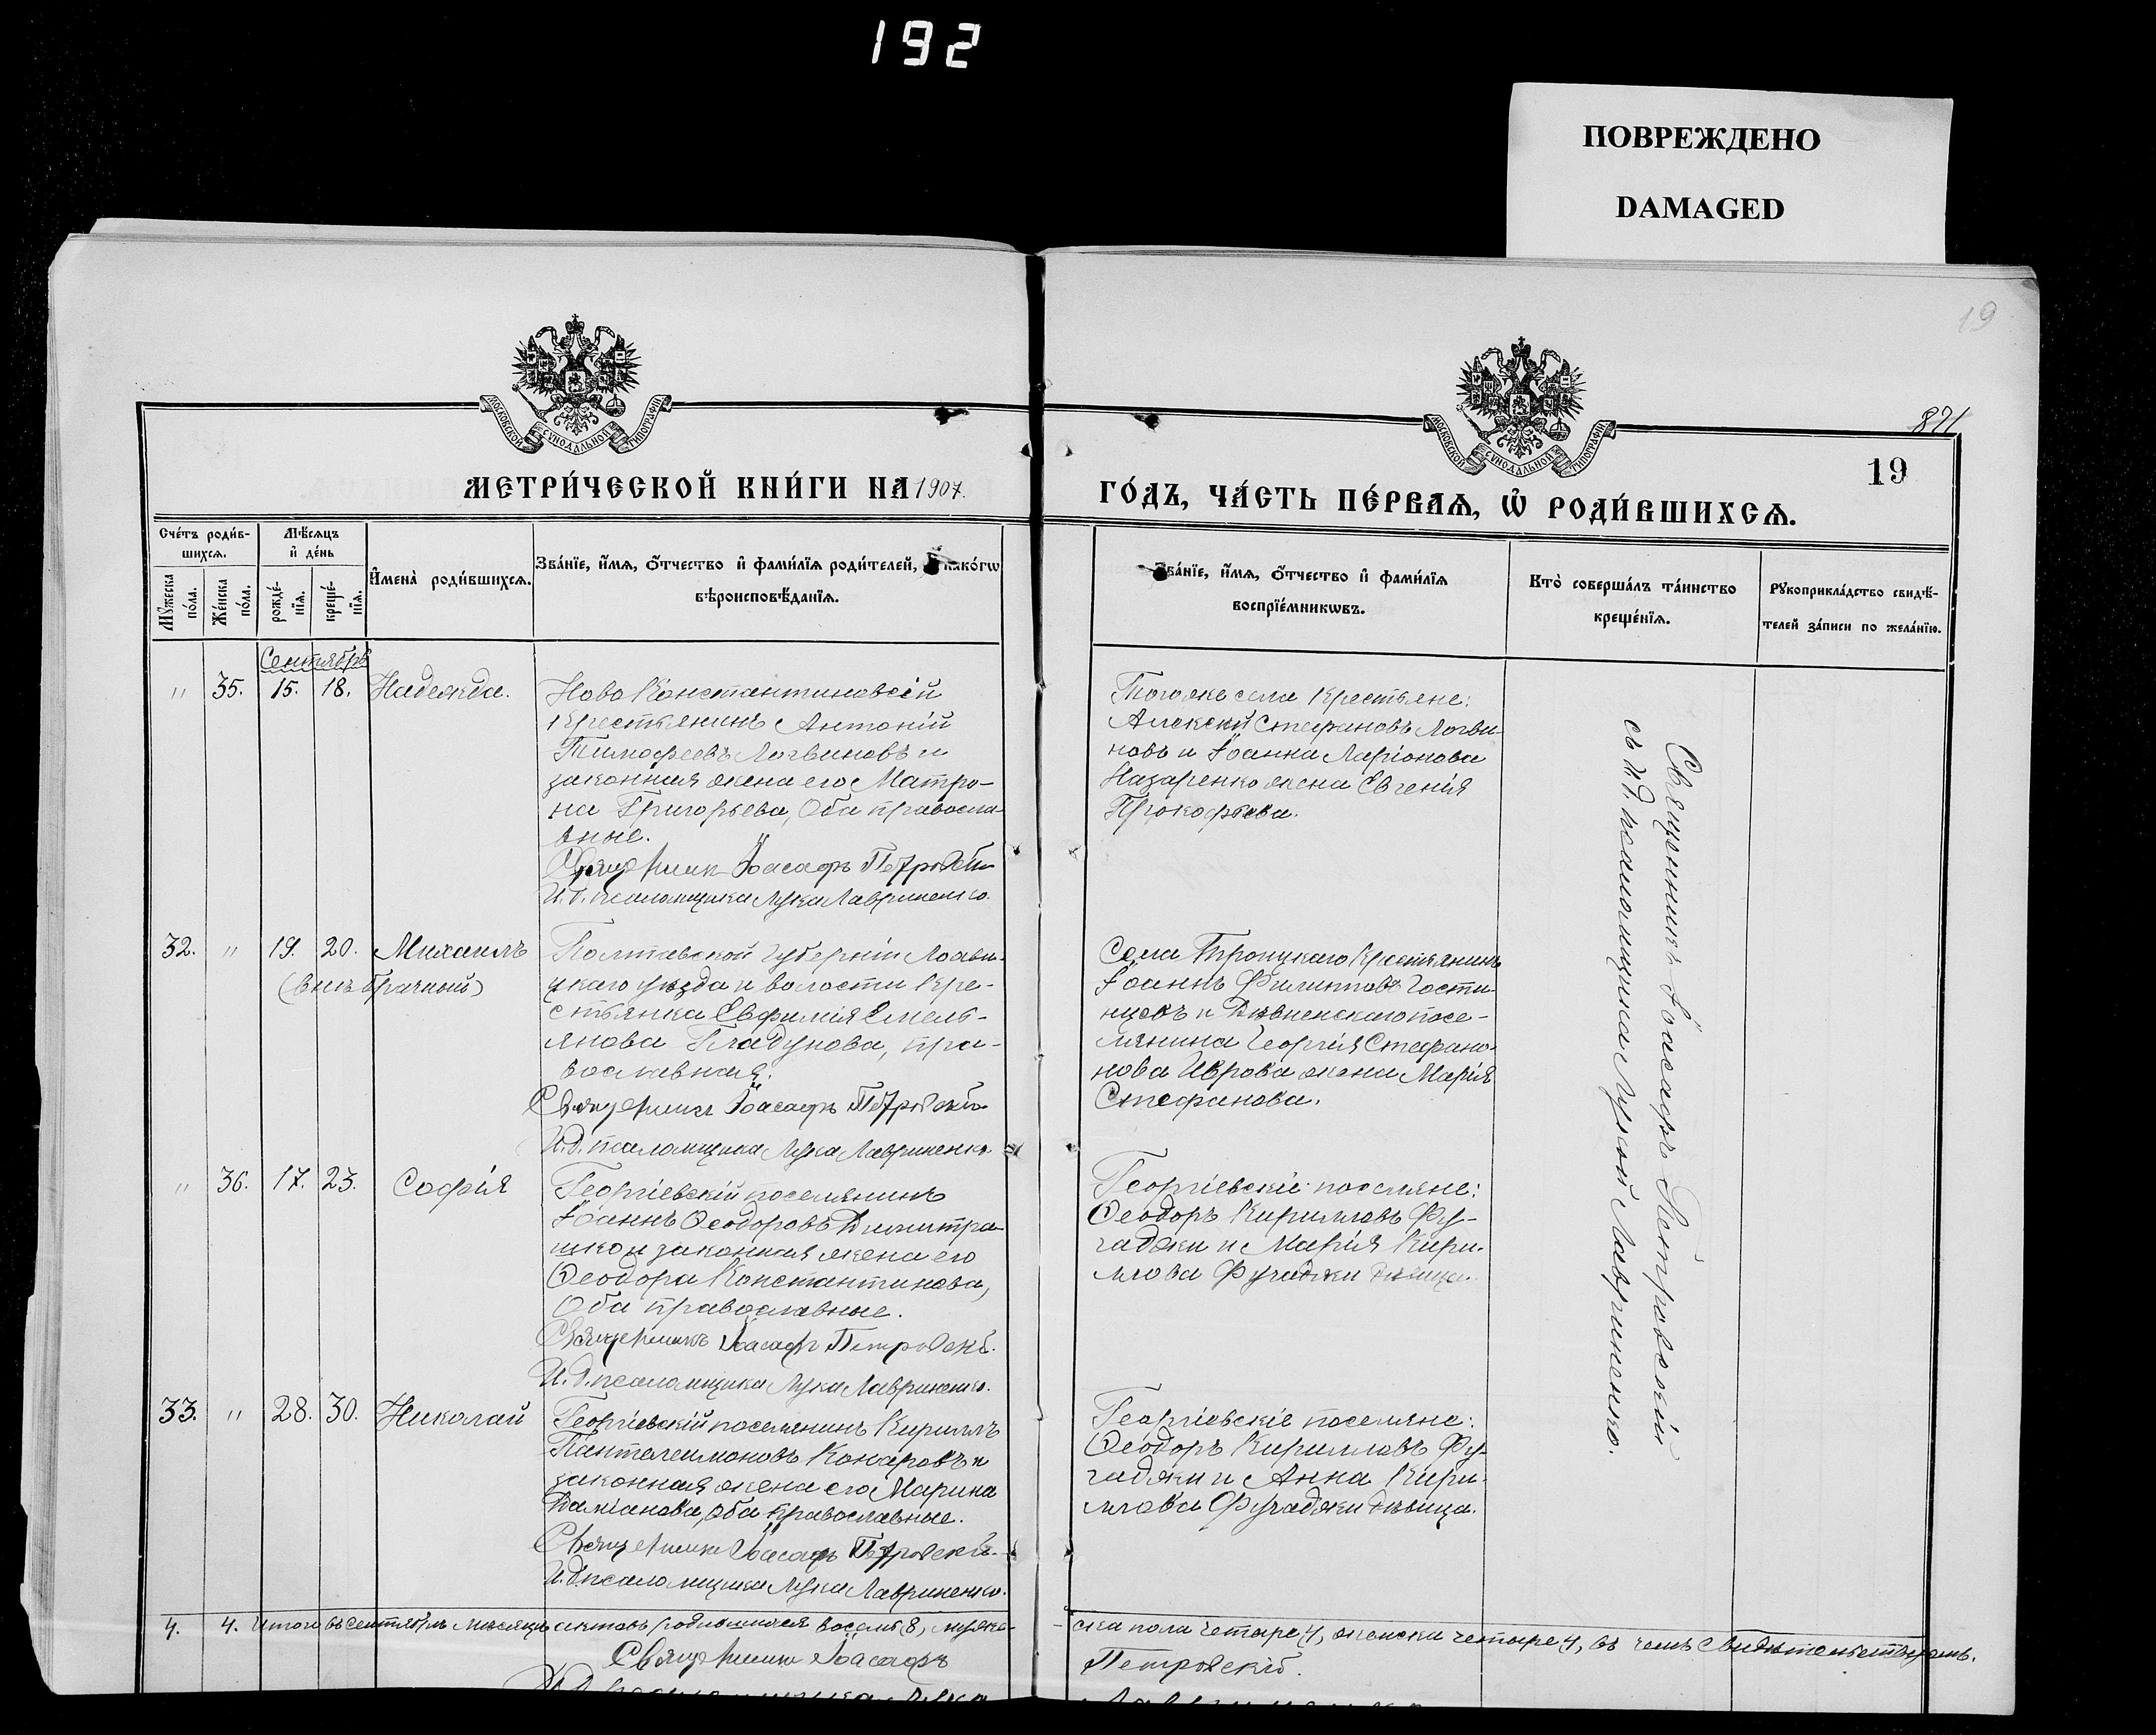 192
ПОВРЕЖДЕНО
DAMAGED
19
871
19
МОСКОВСКОЙ СУНОДАЛЬНОЙ ТИПОГРАФІИ
МОСКОВСКОЙ СУНОДАЛЬНОЙ ТИПОГРАФІИ
МЕТРИ́ЧЕСКОЙ КНИ́ГИ НА 1907.
ГО́ДЪ, ЧА́СТЬ ПЕ́РВАѦ, Ѡ РОДИ́ВШИХСѦ.
Сче́тъ роди́в-
шихсѧ.
Мꙋ́жеска по́ла.
Же́нска по́ла.
Мѣ́сѧцъ
и҆ де́нь
рожде́-
нїѧ.
креще́-
нїѧ.
И҆мена̀ роди́вшихсѧ.
Зва́нїе, и҆́мѧ, ѻ҆́тчество и҆ фами́лїѧ роди́телей, како́гѡ
вѣроисповѣ́данїѧ.
Зва́нїе, и҆́мѧ, ѻ҆́тчество и҆ фами́лїѧ
воспрїе́мникѡвъ.
Кто̀ соверша́лъ та́инство
креще́нїѧ.
Рꙋкоприкла́дство свидѣ́-
телей за́писи по жела́нїю.
Сентябрь
" 35. 15. 18. Надежда.
Ново Константиновскій
крестьянинъ Антоній
Тимофеевъ Логвиновъ и
законная жена его Матро-
на Григорьева, Оба правосла-
вные.
Священникъ Іоасафъ Петровскій
И.д. псаломщика Лука Лавриненко.
Тогоже села крестьяне:
Алексѣй Стефановъ Логви-
новъ и Іоанна Ларіонова
Назаренко жена Евгенія
Прокофьева.
32. " 19. 20. Михаилъ
(внѣбрачный)
Полтавской губерніи Лохви-
цкаго уѣзда и волости кре-
стьянка Евфимія Емель-
янова Гладунова, пра-
вославная.
Священникъ Іоасафъ Петровскій
И.д. псаломщика Лука Лавриненко
Села Троицкаго крестьянинъ
Іоаннъ Филипповъ Гости-
щевъ и Дивненскаго посе-
лянина Георгія Стефано-
нова Іврова жена Марія
Стефанова.
" 36. 17. 23. Софія
Георгіевскій поселянинъ
Іоаннъ Ѳеодоровъ Димитра-
шко и законная жена его
Ѳеодора Константинова,
Оба православные.
Священникъ Іоасафъ Петровскій.
И.д. псаломщика Лука Лавриненко.
Георгіевскіе поселяне:
Ѳеодоръ Кирилловъ Фу-
гаджи и Марія Кири-
ллова Фугаджи дѣвица.
33. " 28. 30. Николай
Георгіевскій поселянинъ Кириллъ
Пантелеимоновъ Комаровъ и
законная жена его Марина
Даміанова, оба православные.
Священникъ Іоасафъ Петровскій.
И.д. псаломщика Лука Лавриненко.
Георгіевскіе поселяне:
Ѳеодоръ Кирилловъ Фу-
гаджи и Анна Кири-
ллова Фугаджи дѣвица.
Священникъ Іоасафъ Петровскій
съ и.д. псаломщика Лукой Лавриненко.
4. 4. Итого въ сентябрѣ мѣсяцѣ актовъ родившихся восемь 8, муже-
ска пола четыре 4, женска четыре 4, въ чемъ свидѣтельствуемъ.
Священникъ Іоасафъ
Петровскій.
И.д. псаломщика Лука
Лавриненко